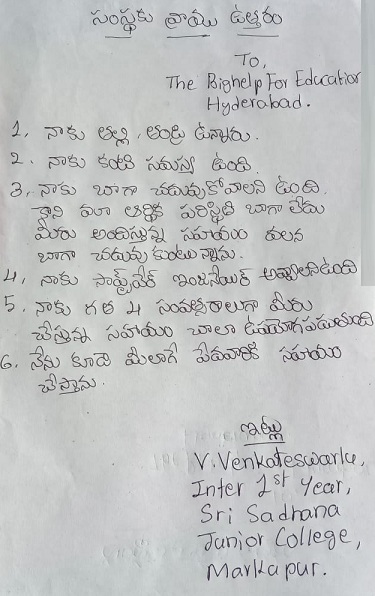 సంస్థకు వ్రాయు ఉత్తరం
To,
The Bighelp For Education
Hyderabad.
1, నాకు తల్లి, తండ్రి ఉన్నారు.
2. నాకు కంటి సమస్య ఉంది.
3, నాకు బాగా చదువుకోవాలని ఉంది.
కాని మా ఆర్థిక పరిస్థితి బాగా లేదు
మీరు అందిస్తున్న సహాయం వలన
బాగా చదువు కుంటున్నాను.
4, నాకు సాఫ్ట్‌వేర్ ఇంజనీయర్ అవ్వాలనిఉంది
5. నాకు గత 4 సంవత్సరాలుగా మీరు
చేస్తున్న సహాయం చాలా ఉపయోగపడుతుంది
6. నేను కూడా మీలాగే పేదవారికి సహాయం
చేస్తాను.
ఇట్లు
V. Venkateswarlu,
Inter 1st Year,
Sri Sadhana
Junior College,
Markapur.